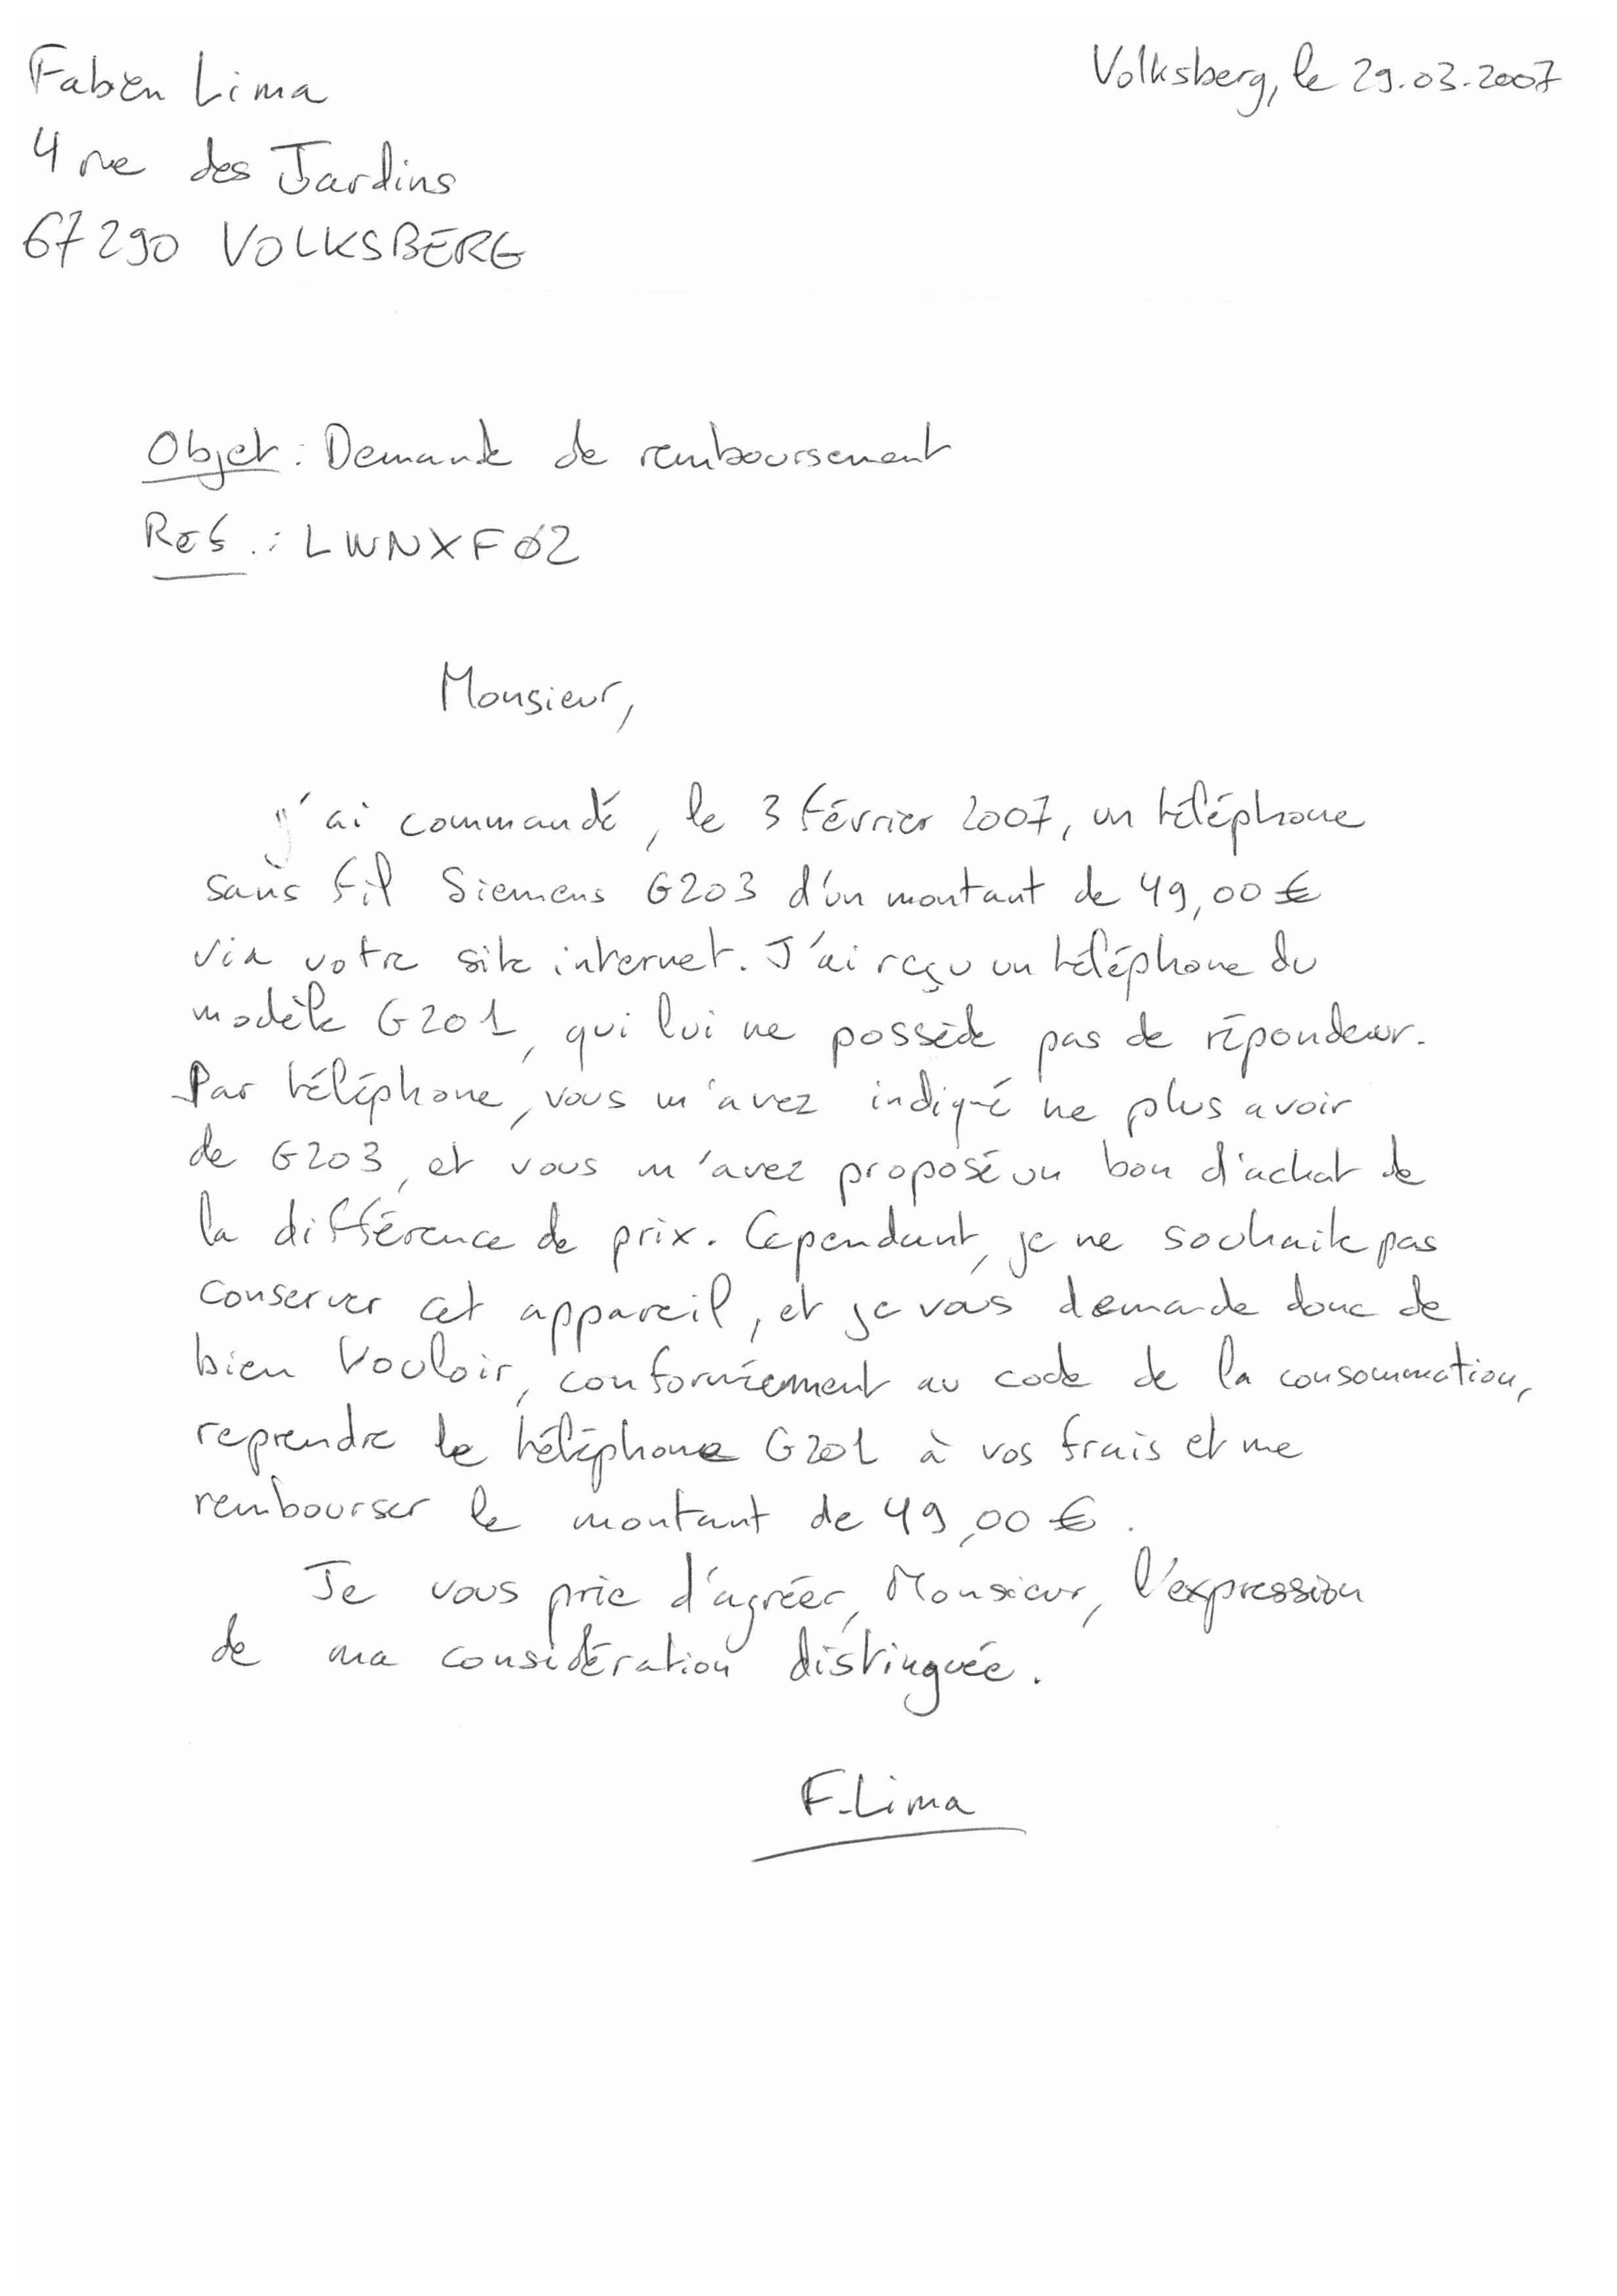 Fabien Lima
Volksberg, le 29.03.2007
4 rue des Jardins
67290 VOLKSBERG
Objet : Demande de remboursement
Réf. : LWNXF02
Monsieur,
j'ai commandé, le 3 février 2007, un téléphone
sans fil Siemens G203 d'un montant de 49,00 €
via votre site internet. J'ai reçu un téléphone du
modèle G201, qui lui ne possède pas de répondeur.
Par téléphone, vous m'avez indiqué ne plus avoir
de G203, et vous m'avez proposé un bon d'achat de
la différence de prix. Cependant, je ne souhaite pas
conserver cet appareil, et je vous demande donc de
bien vouloir, conformément au code de la consommation,
reprendre le téléphone G201 à vos frais et me
rembourser le montant de 49,00 €.
Je vous prie d'agréer, Monsieur, l'expression
de ma considération distinguée.
F.Lima